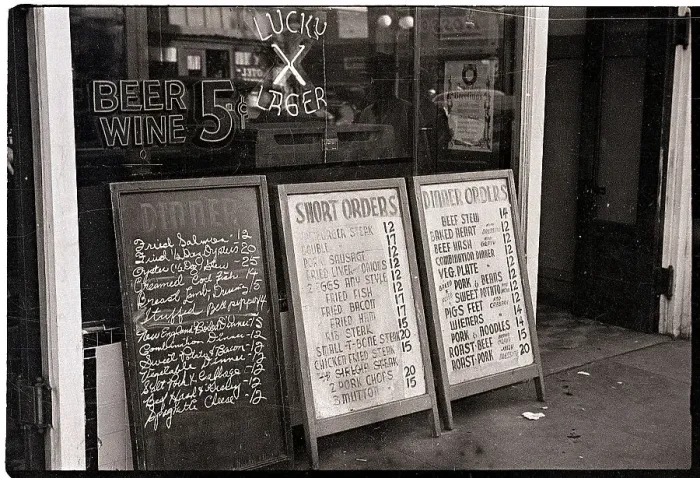 LUCKY
X
LAGER
BEER
WINE 5¢
DINNER
Fried Salmon - 12
Fried ½ Doz Oysters 20
Oyster (½ Doz) Stew - 25
Creamed Cod Fish - 14
Breast Lamb, Dress - 15
Stuffed Bell peppers 14
New England Boiled Dinner 15
Combination Dinner - 12
Sweet Potato & Bacon - 12
Vegetable Dinner - 12
Salt Pork & Cabbage - 12
Beef Hash & Gravy - 12
Spaghetti Cheese - 12
SHORT ORDERS
HAMBURGER STEAK 12
DOUBLE 17
PORK SAUSAGE 12
FRIED LIVER ONIONS 12
2 EGGS ANY STYLE 12
FRIED FISH 12
FRIED BACON 17
FRIED HAM 17
RIB STEAK 15
SMALL T-BONE STEAK 20
CHICKEN FRIED STEAK 15
2 PORK CHOPS 20
3 MUTTON 15
DINNER ORDERS
BEEF STEW 14
BAKED HEART 12
BEEF HASH 12
COMBINATION DINNER 12
VEG. PLATE 12
PORK & BEANS 12
SWEET POTATO 12
PIGS FEET 12
WIENERS 14
PORK & NOODLES 14
ROAST-BEEF 15
ROAST-PORK 20